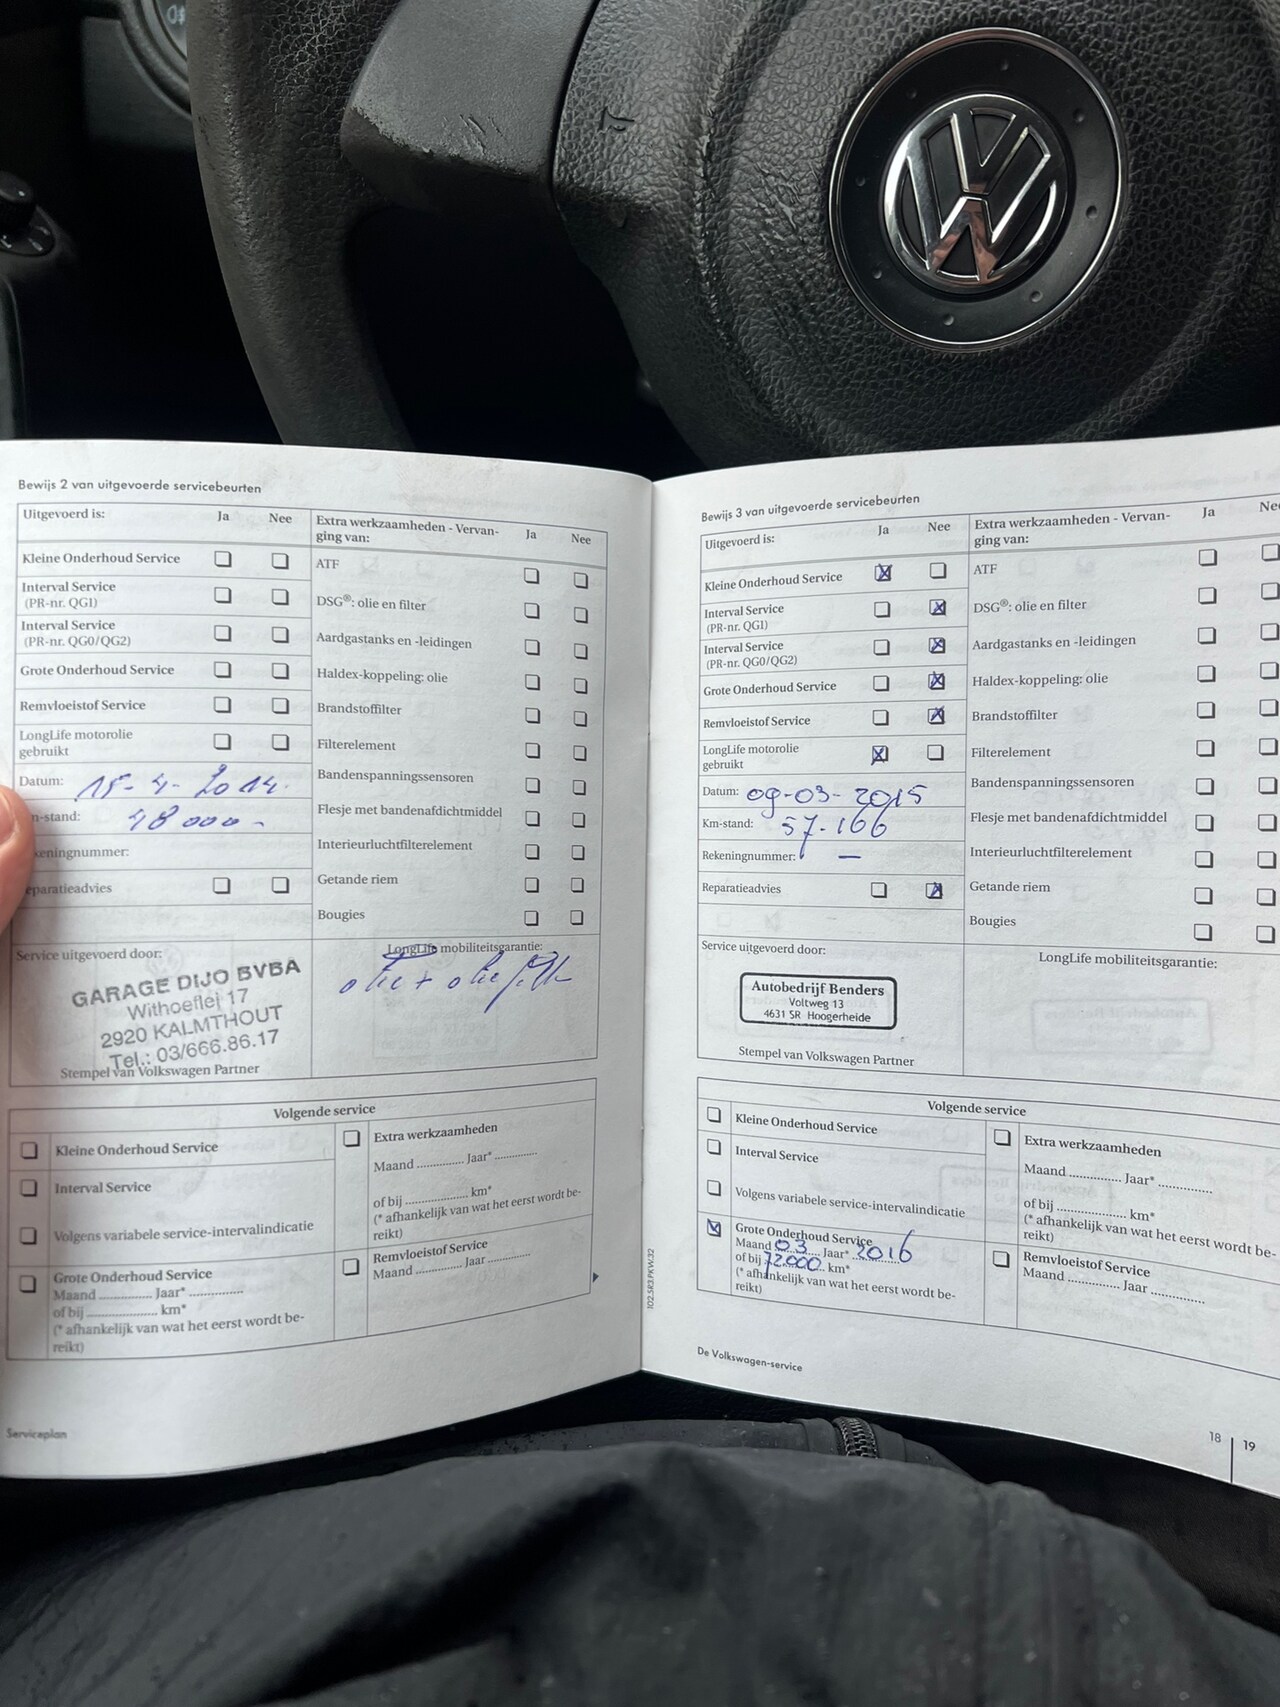 Bewijs 2 van uitgevoerde servicebeurten
Uitgevoerd is: Ja Nee
Kleine Onderhoud Service
Interval Service
(PR-nr. QG1)
Interval Service
(PR-nr. QG0/QG2)
Grote Onderhoud Service
Remvloeistof Service
LongLife motorolie
gebruikt
Datum: 15-4-2014
m-stand: 48000-
keningnummer:
eparatieadvies
Extra werkzaamheden - Vervan-
ging van: Ja Nee
ATF
DSG®: olie en filter
Aardgastanks en -leidingen
Haldex-koppeling: olie
Brandstoffilter
Filterelement
Bandenspanningssensoren
Flesje met bandenafdichtmiddel
Interieurluchtfilterelement
Getande riem
Bougies
Service uitgevoerd door:
GARAGE DIJO BVBA
Withoeflei 17
2920 KALMTHOUT
Tel.: 03/666.86.17
Stempel van Volkswagen Partner
LongLife mobiliteitsgarantie:
olie + oliefilt
Volgende service
Kleine Onderhoud Service
Interval Service
Volgens variabele service-intervalindicatie
Grote Onderhoud Service
Maand .............. Jaar* ..............
of bij .................... km*
(* afhankelijk van wat het eerst wordt be-
reikt)
Extra werkzaamheden
Maand .............. Jaar* ..............
of bij .................... km*
(* afhankelijk van wat het eerst wordt be-
reikt)
Remvloeistof Service
Maand .............. Jaar ..............
Serviceplan
Bewijs 3 van uitgevoerde servicebeurten
Uitgevoerd is: Ja Nee
Kleine Onderhoud Service
Interval Service
(PR-nr. QG1)
Interval Service
(PR-nr. QG0/QG2)
Grote Onderhoud Service
Remvloeistof Service
LongLife motorolie
gebruikt
Datum: 09-03-2015
Km-stand: 57.166
Rekeningnummer: —
Reparatieadvies
Extra werkzaamheden - Vervan-
ging van: Ja Nee
ATF
DSG®: olie en filter
Aardgastanks en -leidingen
Haldex-koppeling: olie
Brandstoffilter
Filterelement
Bandenspanningssensoren
Flesje met bandenafdichtmiddel
Interieurluchtfilterelement
Getande riem
Bougies
Service uitgevoerd door:
Autobedrijf Benders
Voltweg 13
4631 SR Hoogerheide
Stempel van Volkswagen Partner
LongLife mobiliteitsgarantie:
Volgende service
Kleine Onderhoud Service
Interval Service
Volgens variabele service-intervalindicatie
Grote Onderhoud Service
Maand 03 Jaar* 2016
of bij 72000 km*
(* afhankelijk van wat het eerst wordt be-
reikt)
Extra werkzaamheden
Maand .............. Jaar* ..............
of bij .................... km*
(* afhankelijk van wat het eerst wordt be-
reikt)
Remvloeistof Service
Maand .............. Jaar ..............
102.5R3.PKW.32
De Volkswagen-service
18 | 19